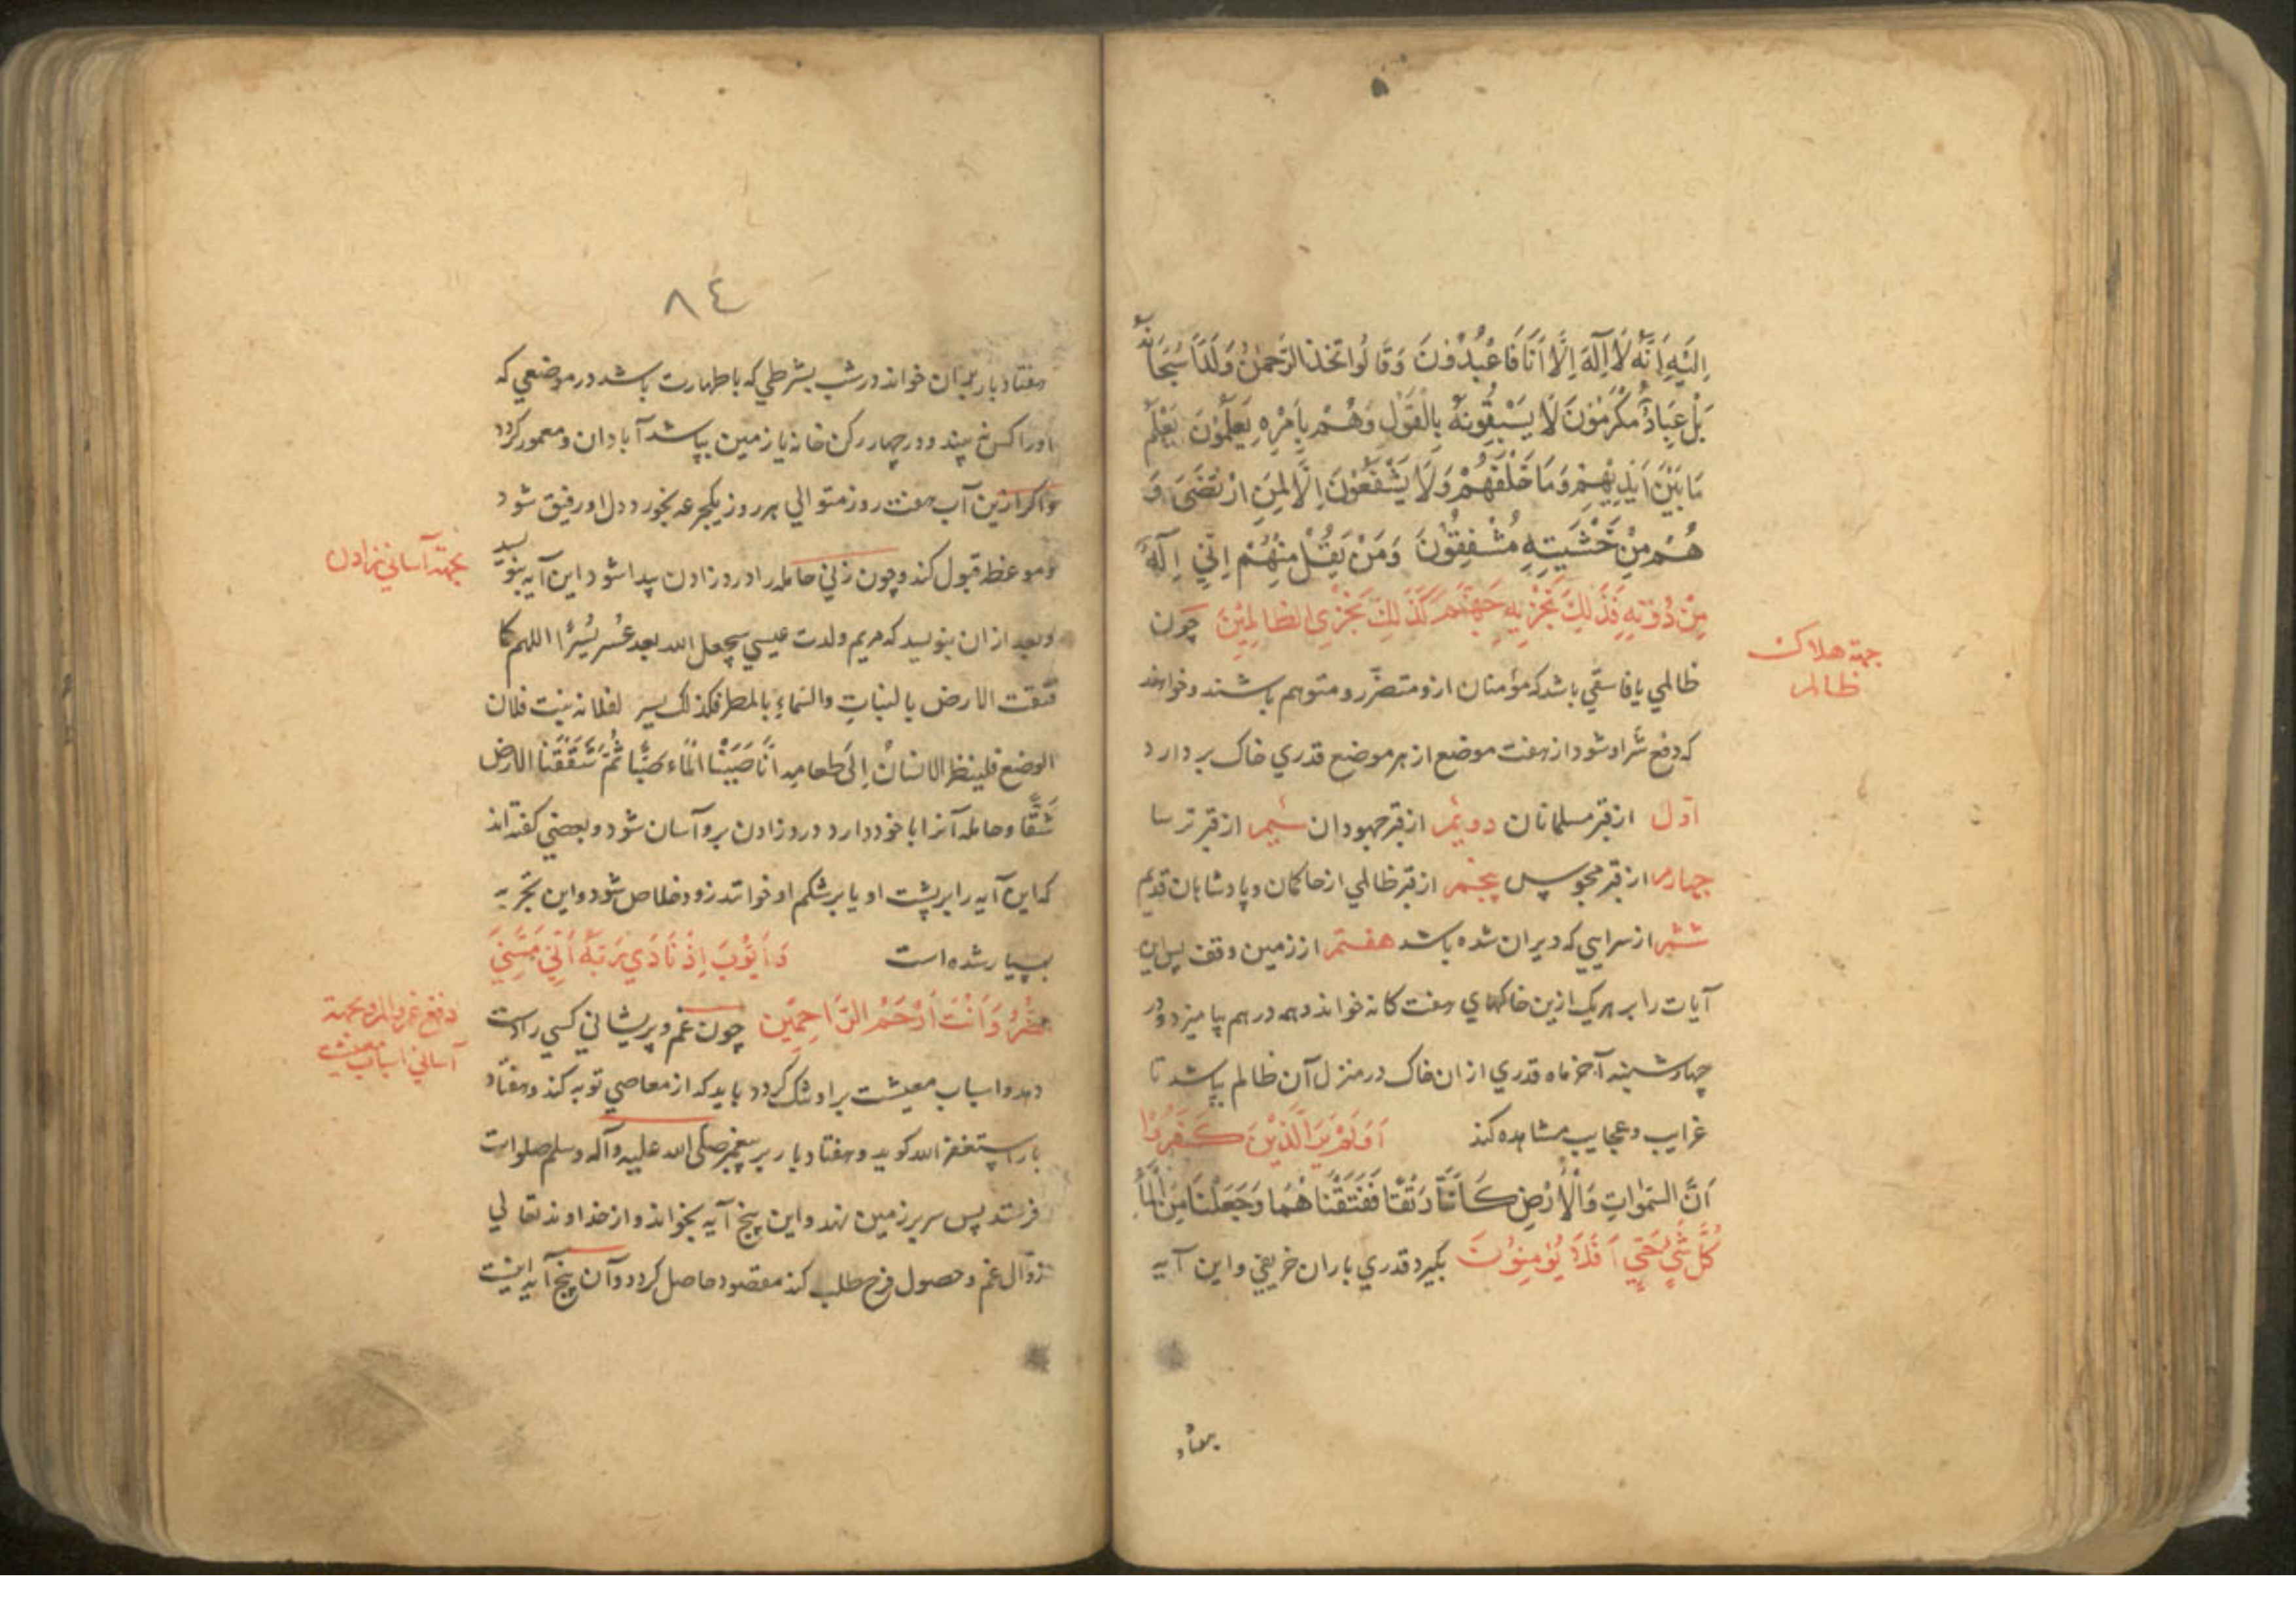 اِلَيْهِ اَنَّهُ لَا اِلَهَ اِلَّا اَنَا فَاعْبُدُونَ وَقَالُوا تَّخَذَ الرَّحْمٰنُ وَلَدًا سُبْحَانَهُ
بَلْ عِبَادٌ مُكْرَمُونَ لَا يَسْبِقُونَهُ بِالْقَوْلِ وَهُمْ بِاَمْرِهِ يَعْلَمُونَ يَعْلَمُ
مَا بَيْنَ اَيْدِيهِمْ وَمَا خَلْفَهُمْ وَلَا يَشْفَعُونَ اِلَّا لِمَنِ ارْتَضَى وَ
هُمْ مِنْ خَشْيَتِهِ مُشْفِقُونَ وَمَنْ يَقُلْ مِنْهُمْ اِنِّي اِلَهٌ
مِنْ دُونِهِ فَذَلِكَ نَجْزِيهِ جَهَنَّمَ كَذَلِكَ نَجْزِي الظَّالِمِينَ چون
جهته هلاكت
ظالم
ظالمي يا فاسقي باشد كه مؤمنان ازو متضرّر و متوهم باشند و خواهند
كه دفع شرّ او شود از هفت موضع از هر موضع قدري خاك بردارد
اوّل از قبر مسلمانان دويّم از قبر جهودان سيم از قبر ترسا
چهارم از قبر مجوس پنجم از قبر ظالمي از حاكمان و پادشاهان قديم
ششم از سرايي كه ديران شده باشد هفتم از زمين وقف پس اين
آيات را بر هر يك ازين خاكهاي هفت كانه خواند و همه در هم بياميزد و در
چهارشنبه آخر ماه قدري از ان خاك در منزل آن ظالم بپاشد تا
غرايب و عجايب مشاهده كند اَوَلَمْ يَرَ الَّذِينَ كَفَرُوا
اَنَّ السَّمٰوَاتِ وَالْاَرْضَ كَانَتَا رَتْقًا فَفَتَقْنَاهُمَا وَجَعَلْنَا مِنَ الْمَاءِ
كُلَّ شَيْءٍ حَيٍّ اَفَلَا يُؤْمِنُونَ بكيرد قدري باران خريفي و اين آيه
هفتاد
٨٤
هفتاد بار بر آن خواند در شب بشرطي كه با طهارت باشد در موضعي كه
اورا كس نه بيند و در چهار ركن خانه يا زمين بپاشد آبادان و معمور كردد
و اكر ازين آب هفت روز متوالي هر روز يكجرعه بخورد دل او رقيق شود
و موعظه قبول كند و چون زني حامله را درد زادن پيدا شود اين آيه بنويسد
بجهته آساني زادن
و بعد از ان بنويسد كه مريم ولدت عيسي سيجعل الله بعد عُسْرٍ يُسْرًا اللهم كما
فتقت الارض بالنباتِ والسّماءِ بالمطر فكذلك يسر لفلانه بنت فلان
الوضع فلينظر الانسانُ اِلَى طعامِهِ اَنَّا صَبَبْنَا الْمَاءَ صَبًّا ثُمَّ شَقَقْنَا الارض
شَقًّا و حامله آنرا با خود دارد درد زادن برو آسان شود و بعضي كفته اند
كه اين آيه را بر پشت او يا بر شكم او خوانند زود خلاص شود و اين تجربه
بسيار شده است وَاَيُّوبَ اِذْ نَادَي رَبَّهُ اَنِّي مَسَّنِيَ
الضُّرُّ وَاَنْتَ اَرْحَمُ الرَّاحِمِينَ چون غم و پريشاني كسي را دست
دفع غم و الم و بجهته
آساني اسباب معيشت
دهد و اسباب معيشت بر او تنك كردد بايد كه از معاصي توبه كند و هفتاد
بار استغفر الله كويد و هفتاد بار بر پيغمبر صلّى الله عليه وآله وسلم صلوات
فرستد پس سر بر زمين نهد و اين پنج آيه بخواند و از خداوند تعالي
زوال غم و حصول فرح طلب كند مقصود حاصل كردد و آن پنج آيه اينست